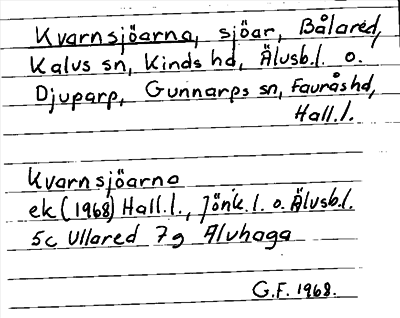 Kvarnsjöarna, sjöar, Bålared,
Kalvs sn, Kinds hd, Älvsb.l. o.
Djuparp, Gunnarps sn, Fauråshd,
Hall.l.
Kvarnsjöarna
ek (1968) Hall.l., Jönk.l. o. Älvsb.l.
5c Ullared 7g Alvhaga
G.F. 1968.